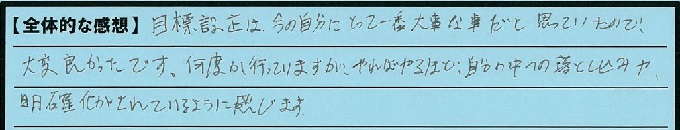 【全体的な感想】目標設定は、今の自分にとって一番大事な事だと思っていたので、
大変良かったです。何度か行っていますが、やればやるほど、自分の中への落とし込みや、
明確化がされているように感じます。